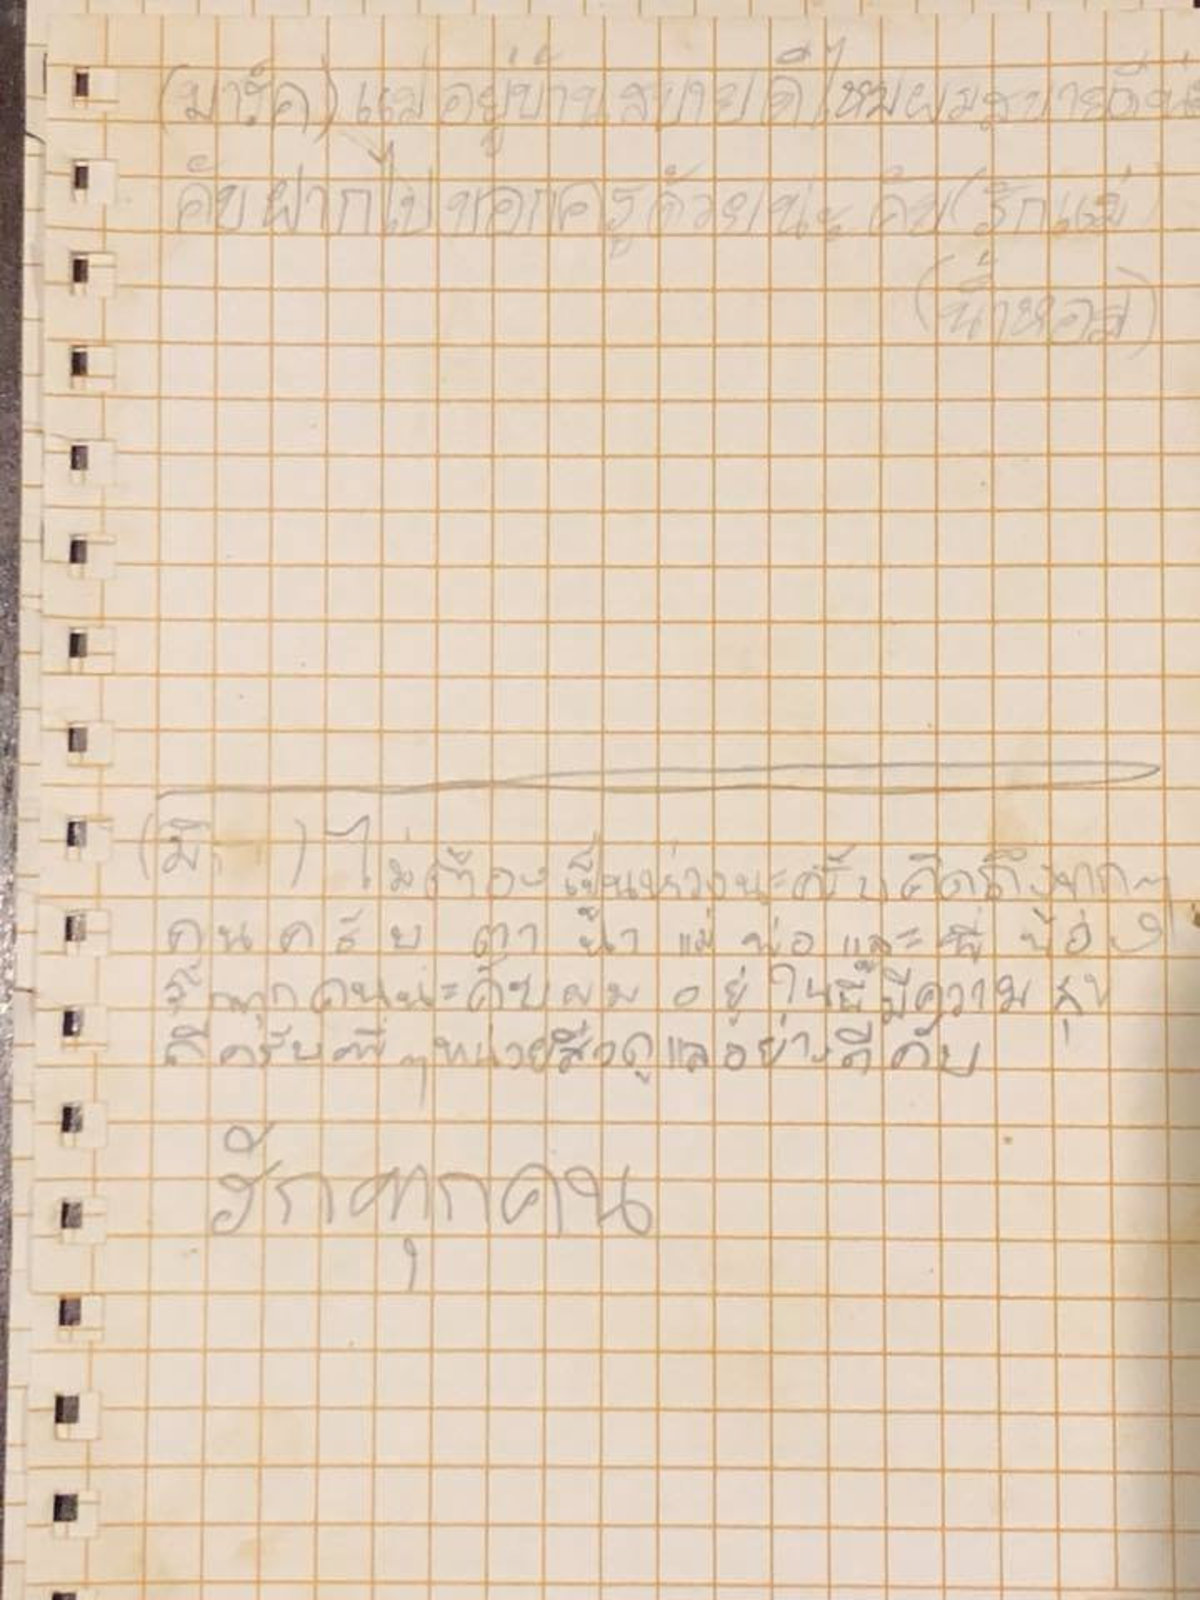 (มาร์ค) แม่อยู่บ้านสบายดีไหมผมสบายดี
คับฝากไปบอกครูด้วยนะ คับ(รักแม่
(น้ำหอม)
(มิ ) ไม่ต้องเป็นห่วงนะครับคิดถึง
คนครับ ตา น้า แม่ พ่อ และ พี่ น้อง
รักทุกคนนะคับผม อยู่ในนี้มีความสุข
ดีครับพี่ๆหน่วยสีวดูแลอย่างดีคับ
รักทุกคน